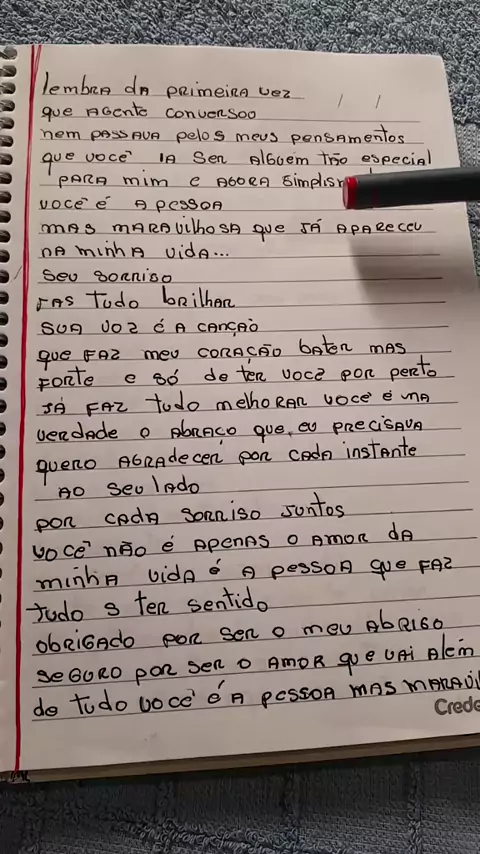 lembra da primeira vez
que agente conversoo
nem passava pelos meus pensamentos
que você ia ser alguém tão especial
para mim e agora
você é a pessoa
mas maravilhosa que já apareceu
na minha vida...
seu sorriso
fas tudo brilhar
sua voz é a canção
que faz meu coração bater mas
forte e só de ter você por perto
já faz tudo melhorar você é na
verdade o abraço que eu precisava
quero agradecer por cada instante
ao seu lado
por cada sorriso juntos
você não é apenas o amor da
minha vida é a pessoa que faz
tudo s ter sentido
obrigado por ser o meu abrigo
seguro por ser o amor que vai além
de tudo você é a pessoa mas